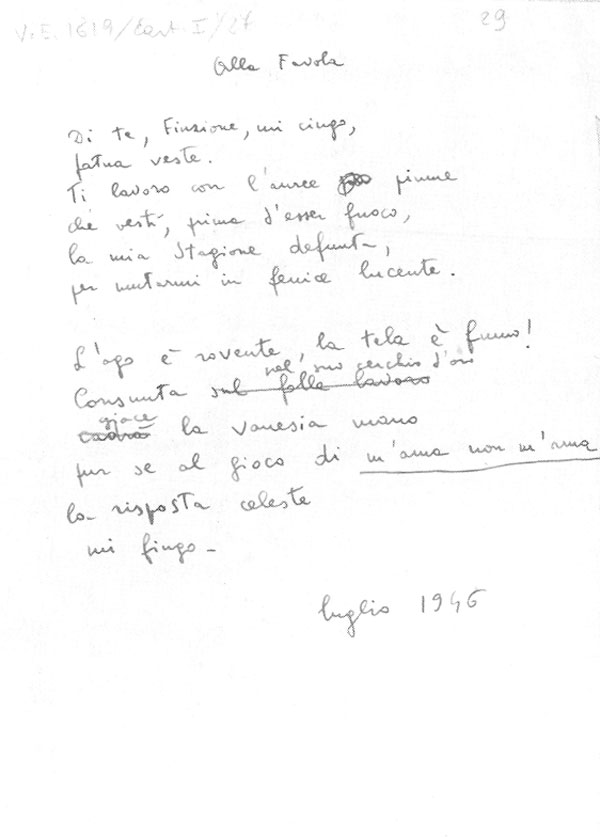 V.E. 1619/Cart. I/27
29
Alla Favola
Di te, Finzione, mi cingo,
fatua veste.
Ti lavoro con l'auree piume
che vestì, prima d'esser fuoco,
la mia stagione defunta,
per mutarmi in fenice lucente.
L'ago è rovente, la tela è fumo!
nel suo cerchio d'oro
Consunta sul folle lavoro
giace
cadrà la vanesia mano
pur se al gioco di m'ama non m'ama
la risposta celeste
mi fingo-
luglio 1946